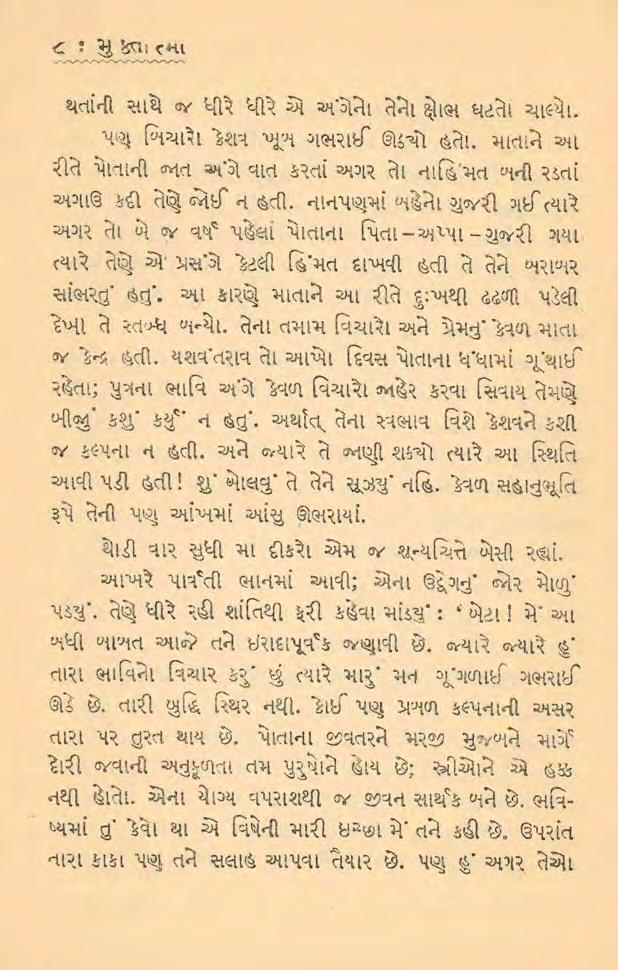 ૮ : મુક્તાત્મા
થતાંની સાથે જ ધીરે ધીરે એ અંગેનો તેનો ક્ષોભ ઘટતો ચાલ્યો.
પણ બિચારો કેશવ ખૂબ ગભરાઈ ઊઠ્યો હતો. માતાને આ
રીતે પોતાની જાત અંગે વાત કરતાં અગર તો નાહિંમત બની રડતાં
અગાઉ કદી તેણે જોઈ ન હતી. નાનપણમાં બહેનો ગુજરી ગઈ ત્યારે
અગર તો બે જ વર્ષ પહેલાં પોતાના પિતા – અપ્પા – ગુજરી ગયા
ત્યારે તેણે એ પ્રસંગે કેટલી હિંમત દાખવી હતી તે તેને બરાબર
સાંભરતું હતું. આ કારણે માતાને આ રીતે દુઃખથી ઢઢળી પડેલી
દેખી તે સ્તબ્ધ બન્યો. તેના તમામ વિચારો અને પ્રેમનું કેવળ માતા
જ કેન્દ્ર હતી. યશવંતરાવ તો આખો દિવસ પોતાના ધંધામાં ગૂંથાઈ
રહેતા; પુત્રના ભાવિ અંગે કેવળ વિચારો જાહેર કરવા સિવાય તેમણે
બીજું કશું કર્યું ન હતું. અર્થાત્ તેના સ્વભાવ વિશે કેશવને કશી
જ કલ્પના ન હતી. અને જ્યારે તે જાણી શક્યો ત્યારે આ સ્થિતિ
આવી પડી હતી! શું બોલવું તે તેને સૂઝ્યું નહિ. કેવળ સહાનુભૂતિ
રૂપે તેની પણ આંખમાં આંસુ ઊભરાયાં.
થોડી વાર સુધી મા દીકરો એમ જ શૂન્યચિત્તે બેસી રહ્યાં.
આખરે પાર્વતી ભાનમાં આવી; એના ઉદ્વેગનું જોર મોળું
પડ્યું. તેણે ધીરે રહી શાંતિથી ફરી કહેવા માંડ્યું : ‘બેટા! મેં આ
બધી બાબત આજે તને ઇરાદાપૂર્વક જણાવી છે. જ્યારે જ્યારે હું
તારા ભાવિનો વિચાર કરું છું ત્યારે મારું મન ગૂંગળાઈ ગભરાઈ
ઊઠે છે. તારી બુદ્ધિ સ્થિર નથી. કોઈ પણ પ્રબળ કલ્પનાની અસર
તારા પર તુરત થાય છે. પોતાના જીવતરને મરજી મુજબને માર્ગે
દોરી જવાની અનુકૂળતા તમ પુરુષોને હોય છે; સ્ત્રીઓને એ હક્ક
નથી હોતો. એના યોગ્ય વપરાશથી જ જીવન સાર્થક બને છે. ભવિ-
ષ્યમાં તું કેવો થા એ વિષેની મારી ઇચ્છા મેં તને કહી છે. ઉપરાંત
તારા કાકા પણ તને સલાહ આપવા તૈયાર છે. પણ હું અગર તેઓ